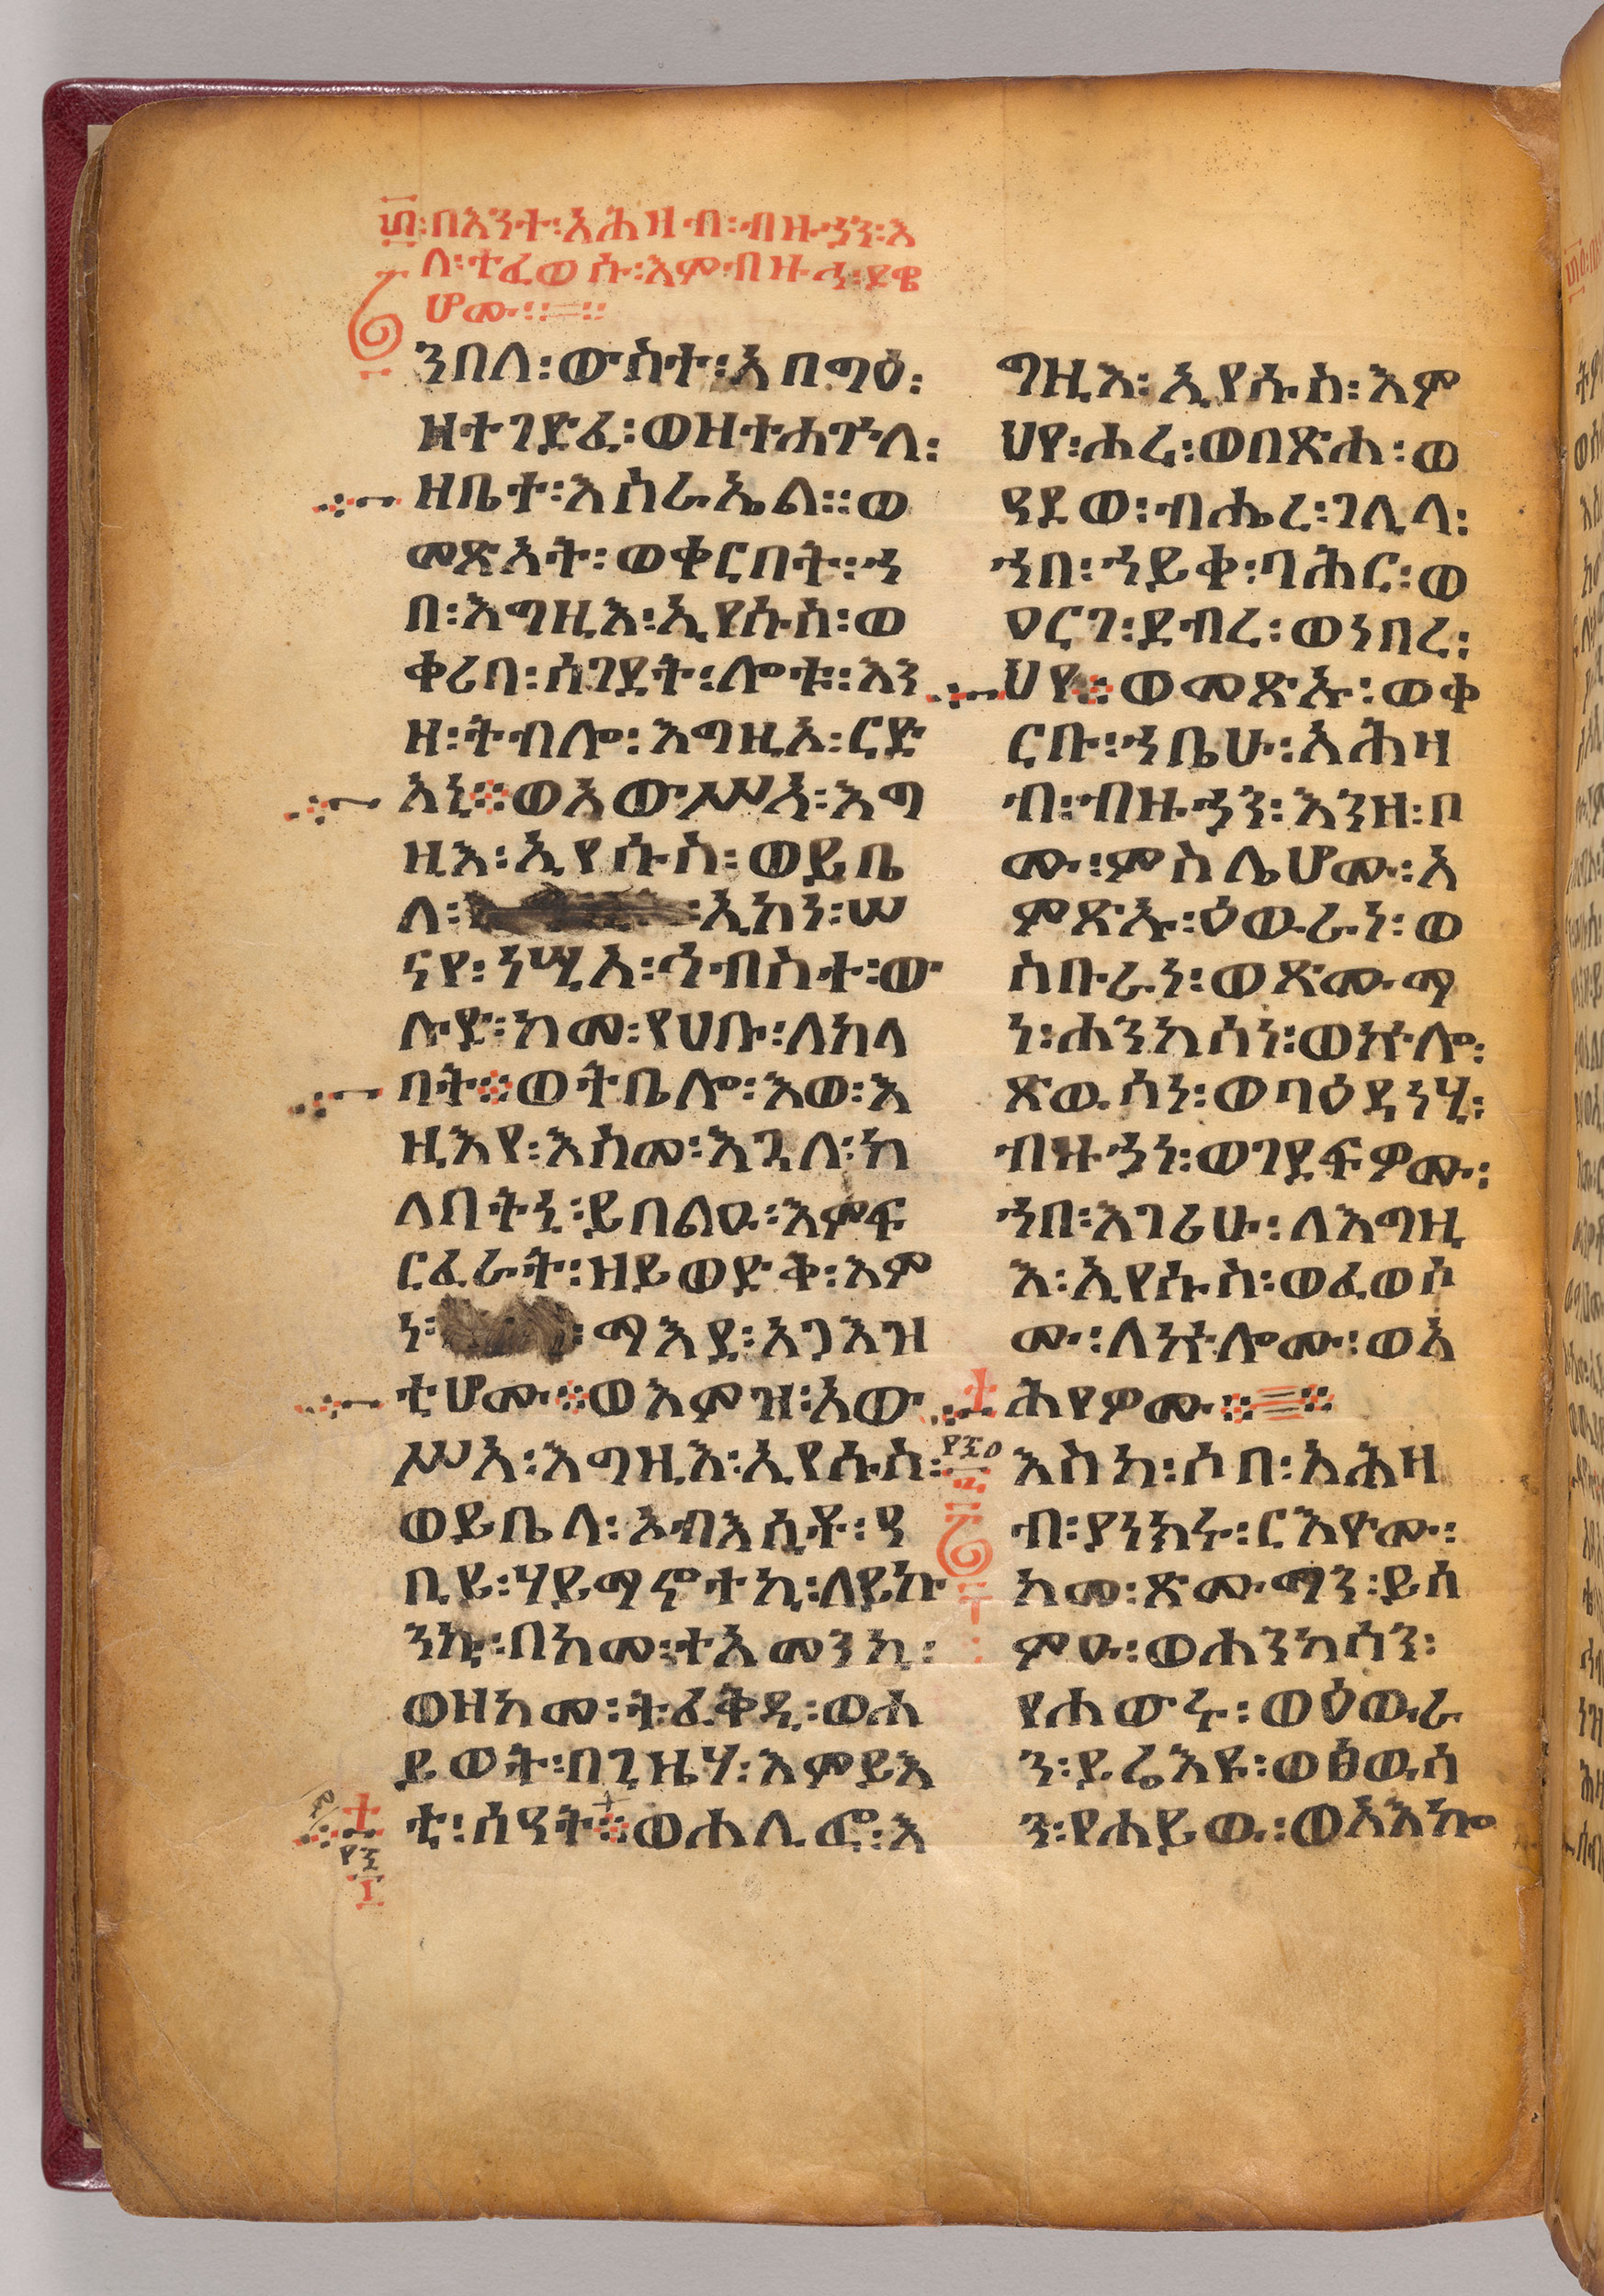 ፴፡በእንተ፡አሕዛብ፡ብዙኃን፡እ
ለ፡ተፈወሱ፡እምብዙኅ፡ደዌ
ሆሙ፡፡
ንበለ፡ውስተ፡አባግዕ፡
ዘተገድፈ፡ወዘተሐጕለ፡
ዘቤተ፡እስራኤል፡፡ወ
መጽአት፡ወቀርበት፡ኀ
በ፡እግዚእ፡ኢየሱስ፡ወ
ቀሪባ፡ሰገደት፡ሎቱ፡፡እን
ዘ፡ትብሎ፡እግዚኦ፡ርድ
አኒ፡፡ወአውሥአ፡እግ
ዚእ፡ኢየሱስ፡ወይቤ
ለ፡ ፡ኢኮነ፡ሠ
ናየ፡ነሢአ፡ኅብስተ፡ው
ሉድ፡ከመ፡የሀቡ፡ለከላ
ባት፡፡ወትቤሎ፡እወ፡እ
ዚእየ፡እስመ፡እጓለ፡ከ
ለባትኒ፡ይበልዑ፡እምፍ
ርፈራት፡ዘይወድቅ፡እም
ነ፡ ፡ማእደ፡አጋእዝ
ቲሆሙ፡፡ወእምዝ፡አው
ሥአ፡እግዚእ፡ኢየሱስ፡
ወይቤላ፡ኦብእሲቶ፡ዓ
ቢይ፡ሃይማኖተኪ፡ለይኩ
ንኪ፡በከመ፡ተአመንኪ፡
ወዘከመ፡ትፈቅዲ፡ወሐ
ይወት፡በጊዜሃ፡እምይእ
ቲ፡ሰዓት፡፡ወሐሊፎ፡እ
ግዚእ፡ኢየሱስ፡እም
ህየ፡ሐረ፡ወበጽሐ፡ወ
ዓደወ፡ብሔረ፡ገሊላ፡
ኀበ፡ኀይቀ፡ባሕር፡ወ
ዐርገ፡ደብረ፡ወነበረ፡
ህየ፡፡ወመጽኡ፡ወቀ
ርቡ፡ኀቤሁ፡አሕዛ
ብ፡ብዙኃን፡እንዘ፡ቦ
ሙ፡ምስሌሆሙ፡አ
ምጽኡ፡ዕውራነ፡ወ
ስቡራነ፡ወጽሙማ
ነ፡ሐንካሳነ፡ወኵሎ፡
ጽዉሳነ፡ወባዕዳነሂ፡
ብዙኃነ፡ወገደፍዎሙ፡
ኀበ፡እገሪሁ፡ለእግዚ
እ፡ኢየሱስ፡ወፈወሶ
ሙ፡ለኵሎሙ፡ወአ
ሕየዎሙ፡፡
እስከ፡ሶበ፡አሕዛ
ብ፡ያነክሩ፡ርእዮሙ፡
ከመ፡ጽሙማን፡ይሰ
ምዑ፡ወሐንካሳን፡
የሐውሩ፡ወዕውራ
ን፡ይሬእዩ፡ወፅዉሳ
ን፡የሐይዉ፡ወአእኰ